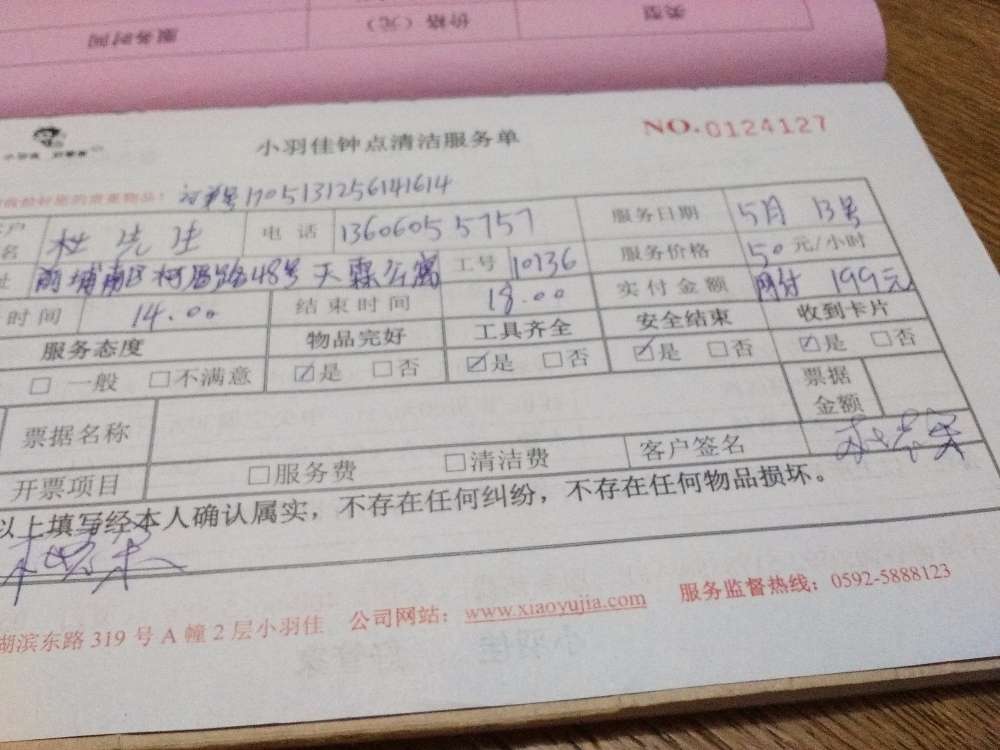 类型
价格（元）
服务时间
小羽佳钟点清洁服务单
NO.0124127
订单号1705131256141614
名 杜先生 电话 13606055757 服务日期 5月13号
前埔南区柯厝路48号天霖公寓 工号 10136 服务价格 50元/小时
时间 14.00 结束时间 18.00 实付金额 网付 199元
服务态度 物品完好 工具齐全 安全结束 收到卡片
□ 一般 □不满意 ☑是 □否 ☑是 □否 ☑是 □否 ☑是 □否
票据名称 票据金额
开票项目 □服务费 □清洁费 客户签名
以上填写经本人确认属实，不存在任何纠纷，不存在任何物品损坏。
湖滨东路319号A幢2层小羽佳 公司网站：www.xiaoyujia.com 服务监督热线：0592-5888123